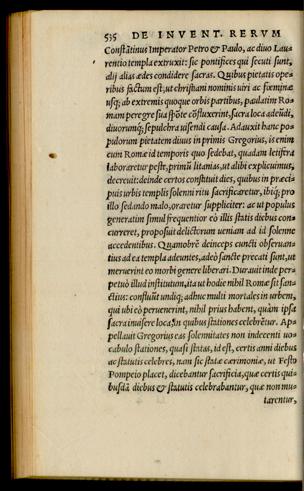 535 DE INVENT. RERVM
Constãtinus Imperator Petro & Paulo, ac diuo Lau=
rentio templa extruxit: sic pontifices qui secuti sunt,
alij alias ædes condidere sacras. Quibus pietatis ope=
ribus factum est, ut christiani nominis uiri ac fœminæ
usq; ab extremis quoque orbis partibus, paulatim Ro=
mam peregre sua spõte cõfluxerint, sacra loca adeũdi,
diuorumq; sepulchra uisendi causa. Adauxit hanc po=
pulorum pietatem diuus in primis Gregorius, is enim
cum Romæ id temporis quo sedebat, quadam letifera
laboraretur peste, primũ litanias, ut alibi explicuimus,
decreuit: deinde certos constituit dies, quibus in præci=
puis urbis templis solenni ritu sacrificaretur, ibiq; pro
illo sedando malo, oraretur suppliciter: ac ut populus
generatim simul frequentior eò illis statis diebus con=
curreret, proposuit delictorum ueniam ad id solenne
accedentibus. Quamobrẽ deinceps cuncti obseruan=
tius ad ea templa adeuntes, adeò sancte precati sunt, ut
meruerint eo morbi genere liberari. Durauit inde per=
petuò illud institutum, ita ut hodie nihil Romæ sit san=
ctius: confluũt undiq; adhuc multi mortales in urbem,
qui ubi eò peruenerint, nihil prius habent, quàm ipsa
sacra inuisere loca, in quibus stationes celebrẽtur. Ap=
pellauit Gregorius eas solemnitates non indecenti uo=
cabulo stationes, quasi statas, id est, certis anni diebus
ac statutis celebres, nam sic statæ cærimoniæ, ut Festo
Pompeio placet, dicebantur sacrificia, quæ certis qui=
busdã diebus & statutis celebrabantur, quæ non mu=
tarentur,